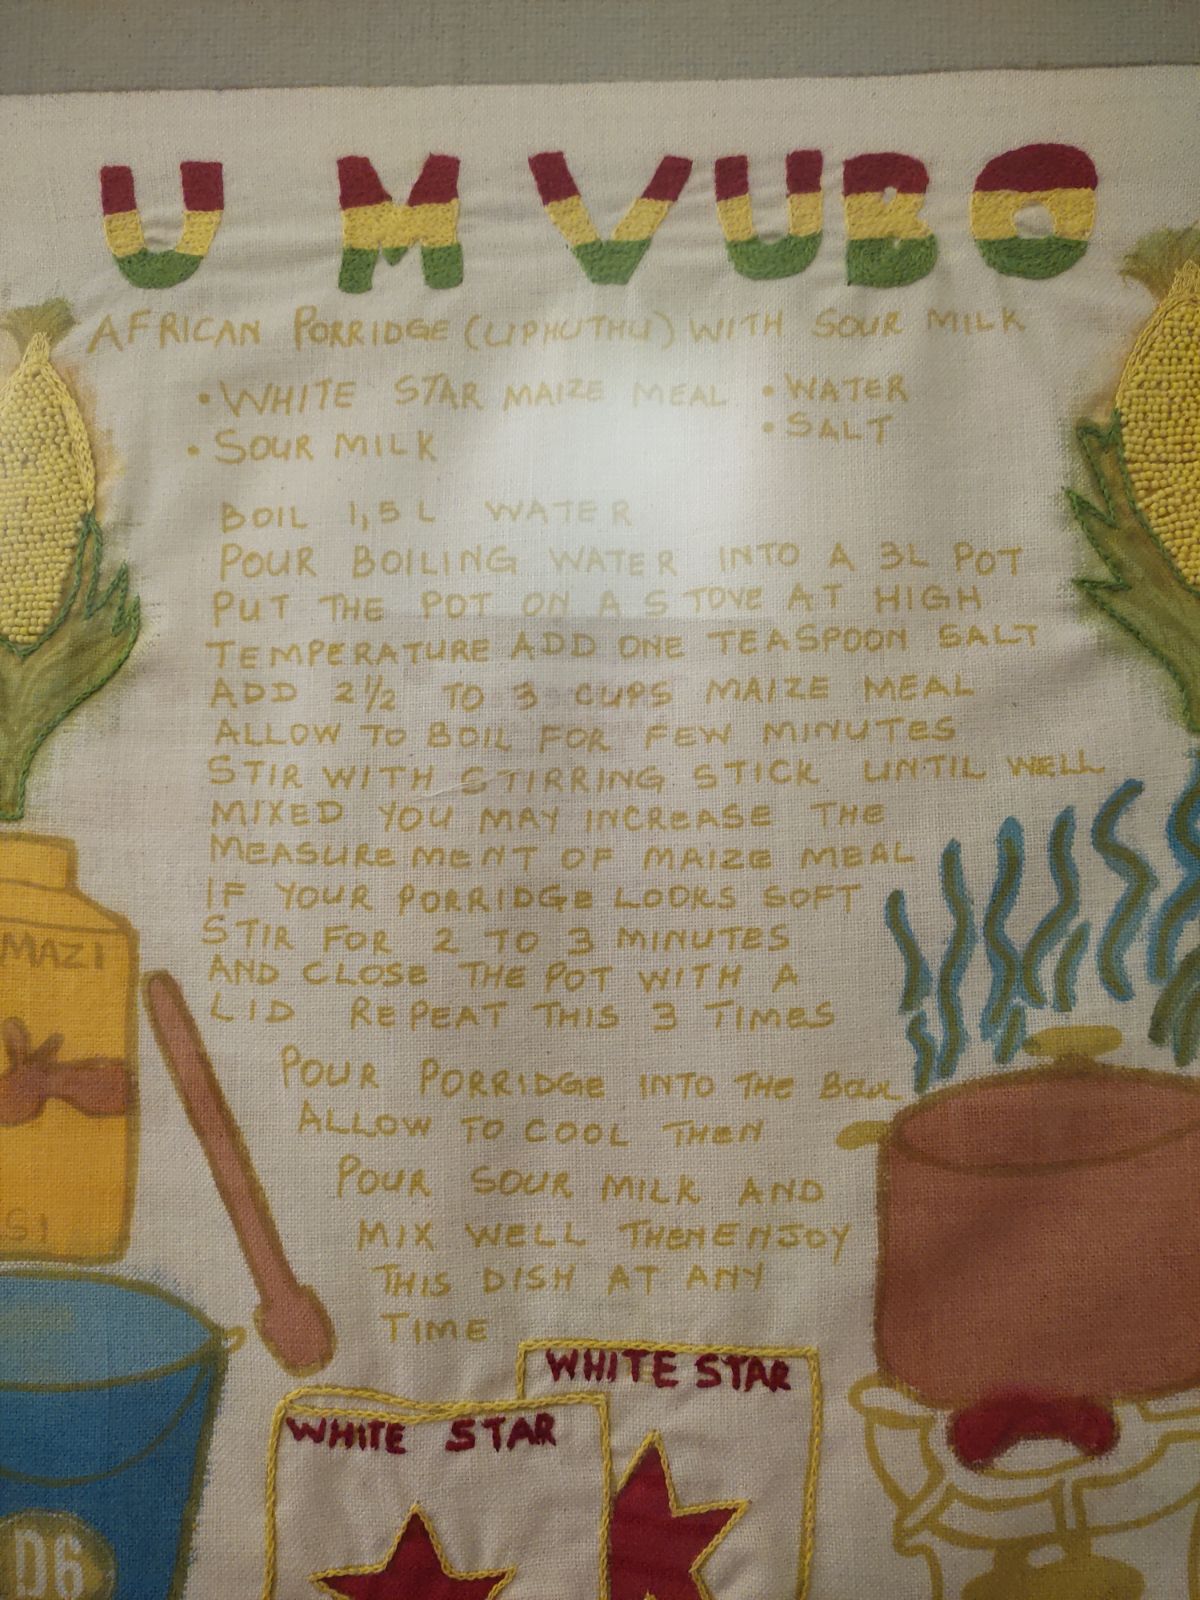 UMVUBO
AFRICAN PORRIDGE (UPHUTHU) WITH SOUR MILK
• WHITE STAR MAIZE MEAL • WATER
• SOUR MILK • SALT
BOIL 1,5 L WATER
POUR BOILING WATER INTO A 3L POT
PUT THE POT ON A STOVE AT HIGH
TEMPERATURE ADD ONE TEASPOON SALT
ADD 2 1/2 TO 3 CUPS MAIZE MEAL
ALLOW TO BOIL FOR FEW MINUTES
STIR WITH STIRRING STICK UNTIL WELL
MIXED YOU MAY INCREASE THE
MEASUREMENT OF MAIZE MEAL
IF YOUR PORRIDGE LOOKS SOFT
STIR FOR 2 TO 3 MINUTES
AND CLOSE THE POT WITH A
LID REPEAT THIS 3 TIMES
POUR PORRIDGE INTO THE BOWL
ALLOW TO COOL THEN
POUR SOUR MILK AND
MIX WELL THEN ENJOY
THIS DISH AT ANY
TIME
MAZI
SI
D6
WHITE STAR
WHITE STAR